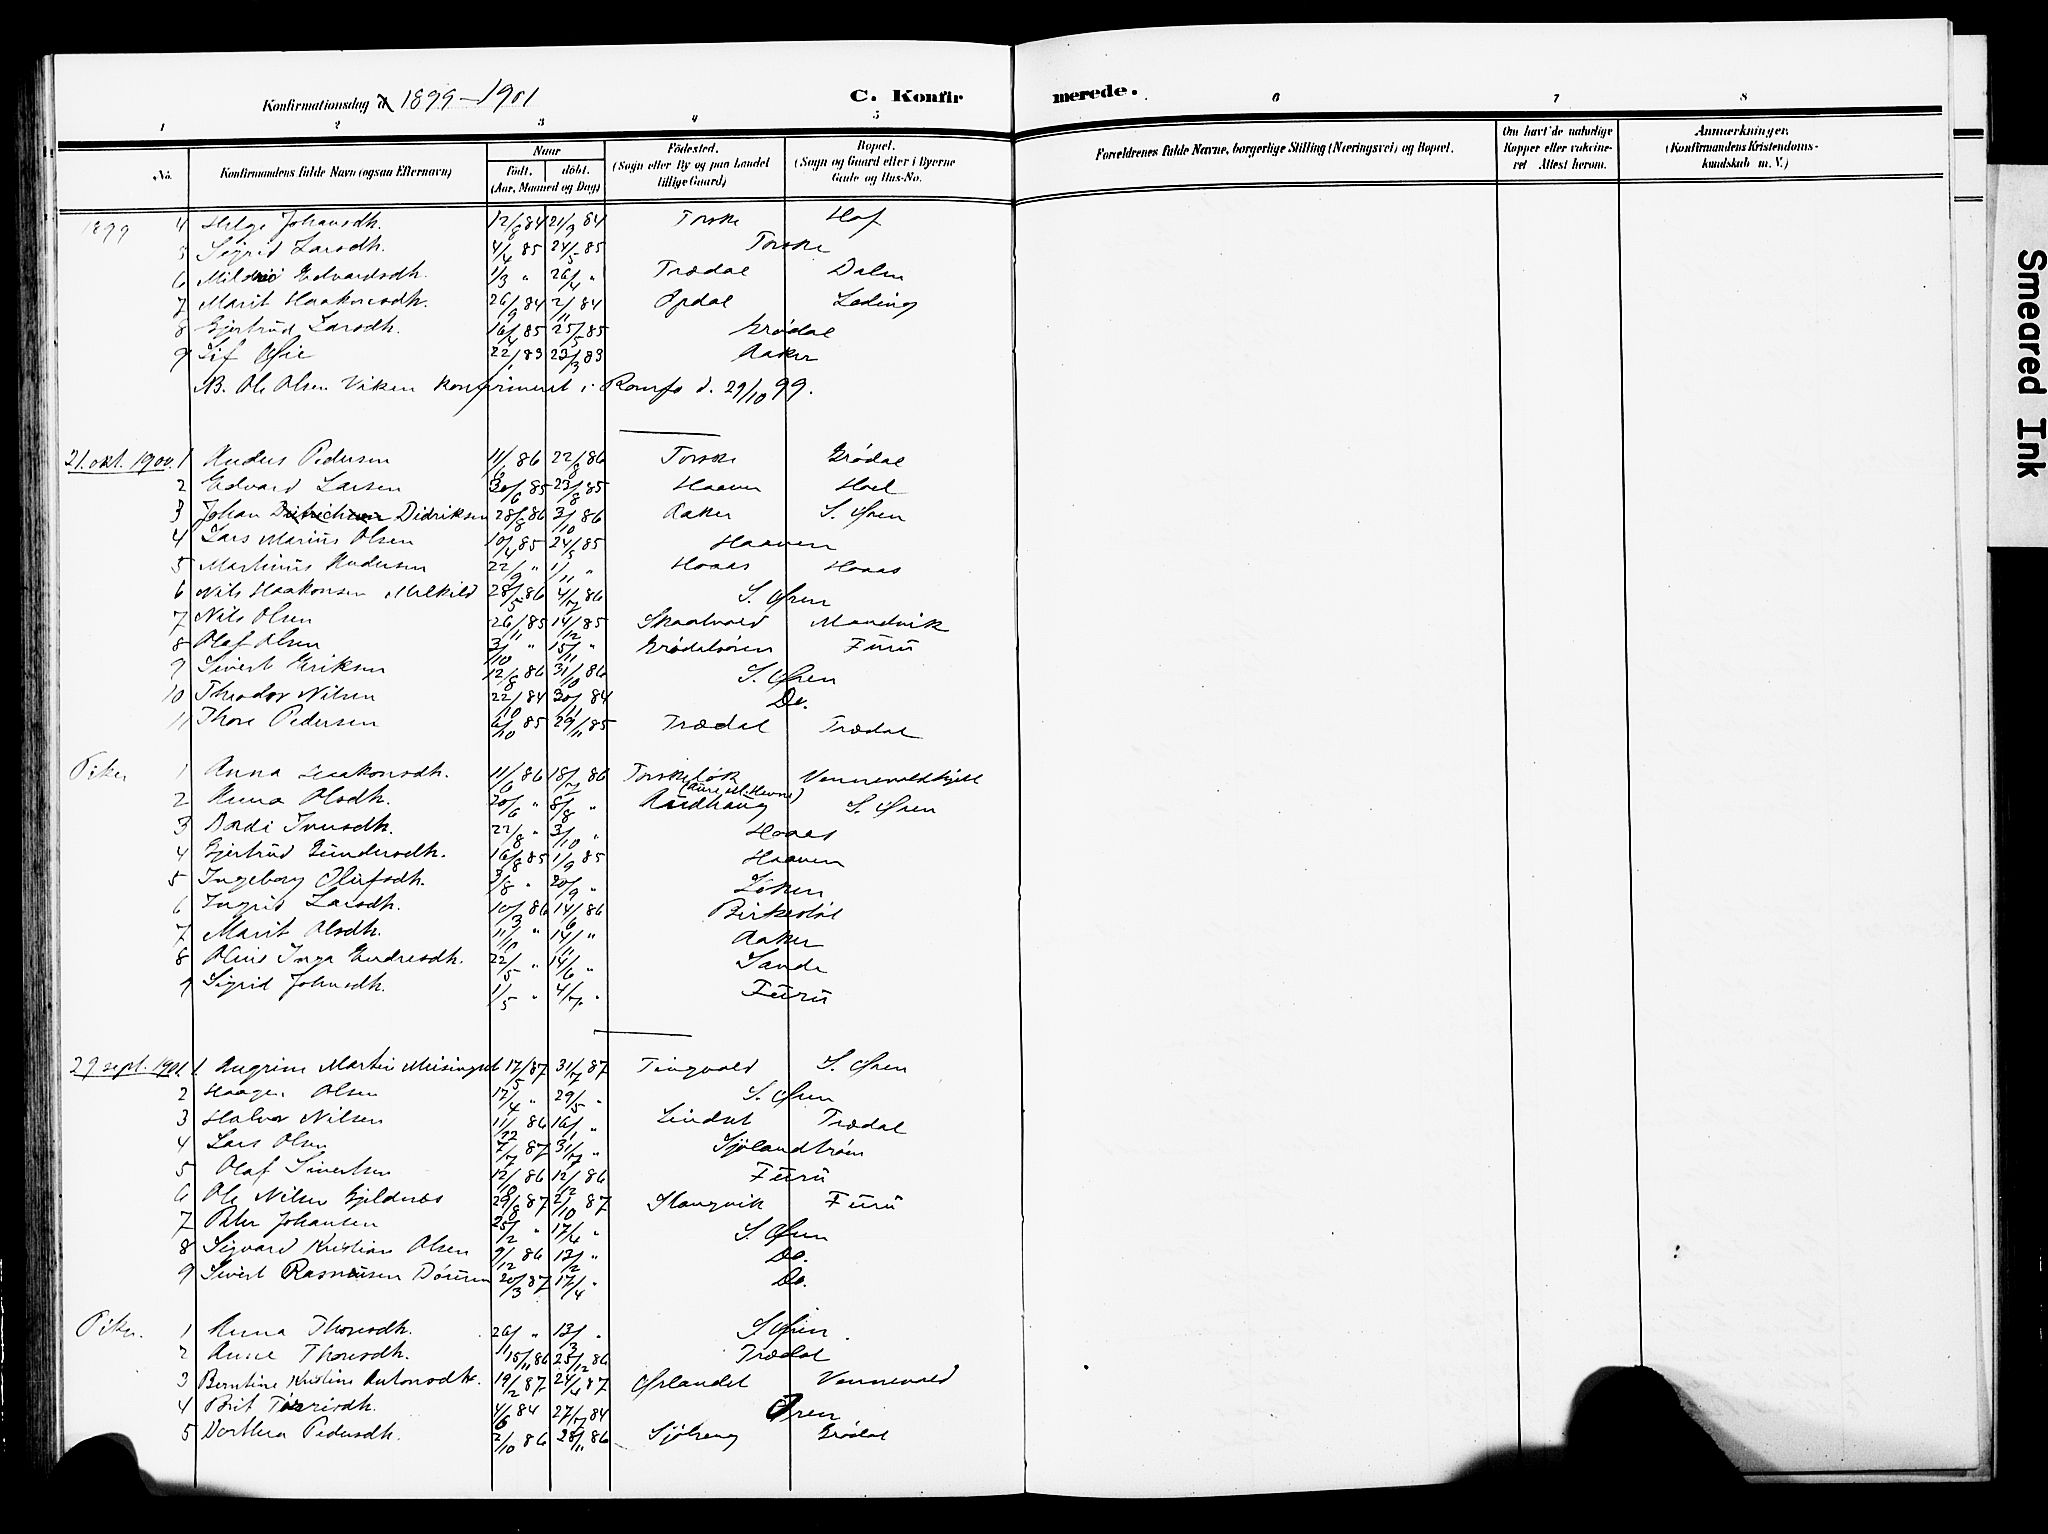 Konfirmationsdag d 1899-1901 C. Konfir merede.
1 2 3 4 5 6 7 8
No. Konfirmandens fulde Navn (ogsaa Efternavn) Naar Født. døbt. (Aar, Maaned og Dag) Fødested. (Sogn eller By og paa Landet tillige Gaard) Bopæl. (Sogn og Gaard eller i Byerne Gade og Hus-No. Forældrenes fulde Navne, borgerlige Stilling (Næringsvei) og Bopæl. Om havt de naturlige Kopper eller vaccineret Attest herom. Anmærkninger. (Konfirmandens Kristendomskundskab m. V.)
1899 4 Helge Johansdh. 12/8 84 21/9 84 Torske Hof
5 Sigrid Larsdh. 4/4 85 24/5 85 Torske
6 Edvardsdh. 1/3 " 26/4 " Trædal Dalen
7 Marit Haakonsdh. 26/9 84 2/11 84 Opdal Leding
8 Gjertrud Larsdh. 16/4 85 25/5 85 Grødal
9 Sif Øie 22/1 83 23/3 83 Aaker
NB. Ole Olsen Viken konfirmeret i Romfo d. 29/10 99.
21. okt. 1900. 1 Anders Pedersen 11/6 86 22/8 86 Torske Grødal
2 Edvard Larsen 30/6 85 23/8 85 Haaven Hoel
3 Johan Didriksen 28/8 86 3/10 86 Aaker S. Øren
4 Lars Marius Olsen 10/4 85 24/5 85 Haaven
5 Martinus Andersen 22/9 " 1/11 " Hoaas Hoaas
6 Nils Haakonsen Melkild 28/5 86 4/7 86 S. Øren
7 Nils Olsen 26/11 85 14/12 85 Skaalvold Mandvik
8 Olaf Olsen 3/10 " 15/11 " Grødalsøren Furu
9 Sivert Eriksen 12/8 86 31/10 86 S. Øren
10 Theodor Nilsen 22/10 84 30/11 84 Do.
11 Thore Pedersen 6/10 85 29/11 85 Trædal Trædal
Piker 1 Anna Haakonsdh. 11/6 86 18/7 86 Torskeløk Vennevoldhjell
2 Anna Olsdh. 20/6 " 8/8 " Rudhaug S. Øren
3 Bordi Iversdh. 22/8 " 3/10 " Hoaas
4 Gjertrud Gundersdh. 16/8 85 1/9 85 Haaven
5 Ingeborg Olufsdh. 3/8 " 20/9 " Løken
6 Ingrid Larsdh. 10/3 86 14/6 86 Birkestøl
7 Marit Olsdh. 11/10 " 14/11 " Aaker
8 Oline Inga Endresdh. 22/5 " 14/6 " Sande
9 Sigrid Johnsdh. 1/5 " 4/7 " Furu
29 sept. 1901. 1 Angrim Martin Meisingset 17/5 87 31/7 87 Tingvold S. Øren
2 Haagen Olsen 17/4 " 29/5 " S. Øren
3 Halvor Nilsen 11/12 86 16/1 " Lindset Trædal
4 Lars Olsen 7/7 87 31/7 " Sjølandtrøen
5 Olaf Sivertsen 12/10 86 12/12 86 Furu
6 Ole Nilsen Gjeldnæs 29/8 87 2/10 87 Stangvik Furu
7 Peter Johansen 25/2 " 17/4 " S. Øren
8 Sigvard Kristian Olsen 9/12 86 13/2 " Do.
9 Sivert Rasmusen Dørum 20/3 87 17/4 " Do.
Piker. 1 Anna Thoresdh. 26/1 " 13/3 " S. Øren
2 Anne Thoresdh. 15/11 86 25/12 86 Trædal
3 Berntine Kristine Antonsdh. 19/2 87 24/4 87 Ørlandet Vennevold
4 Brit Torrisdh. 4/6 84 27/7 84 Øren
5 Dorthea Pedersdh. 2/10 86 28/11 86 Sjøhaug Grødal
Smeared Ink